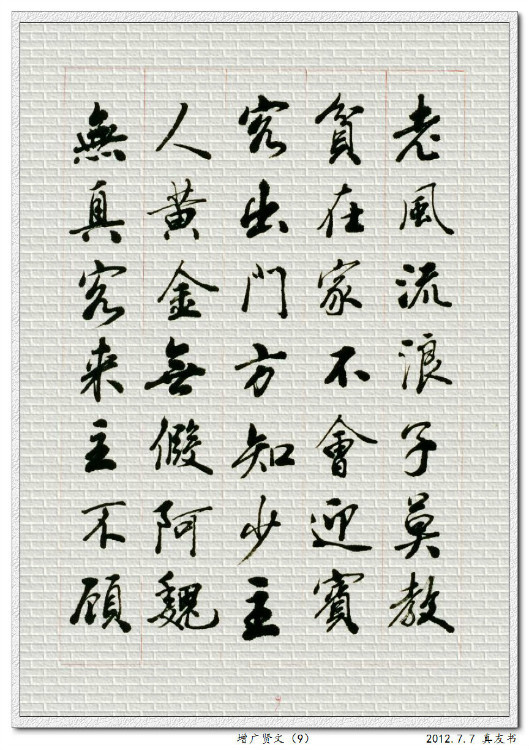 老風流浪子莫教
貧在家不會迎賓
客出門方知少主
人黃金無假阿魏
無真客来主不顧
增广贤文（9）
2012.7.7 真友书